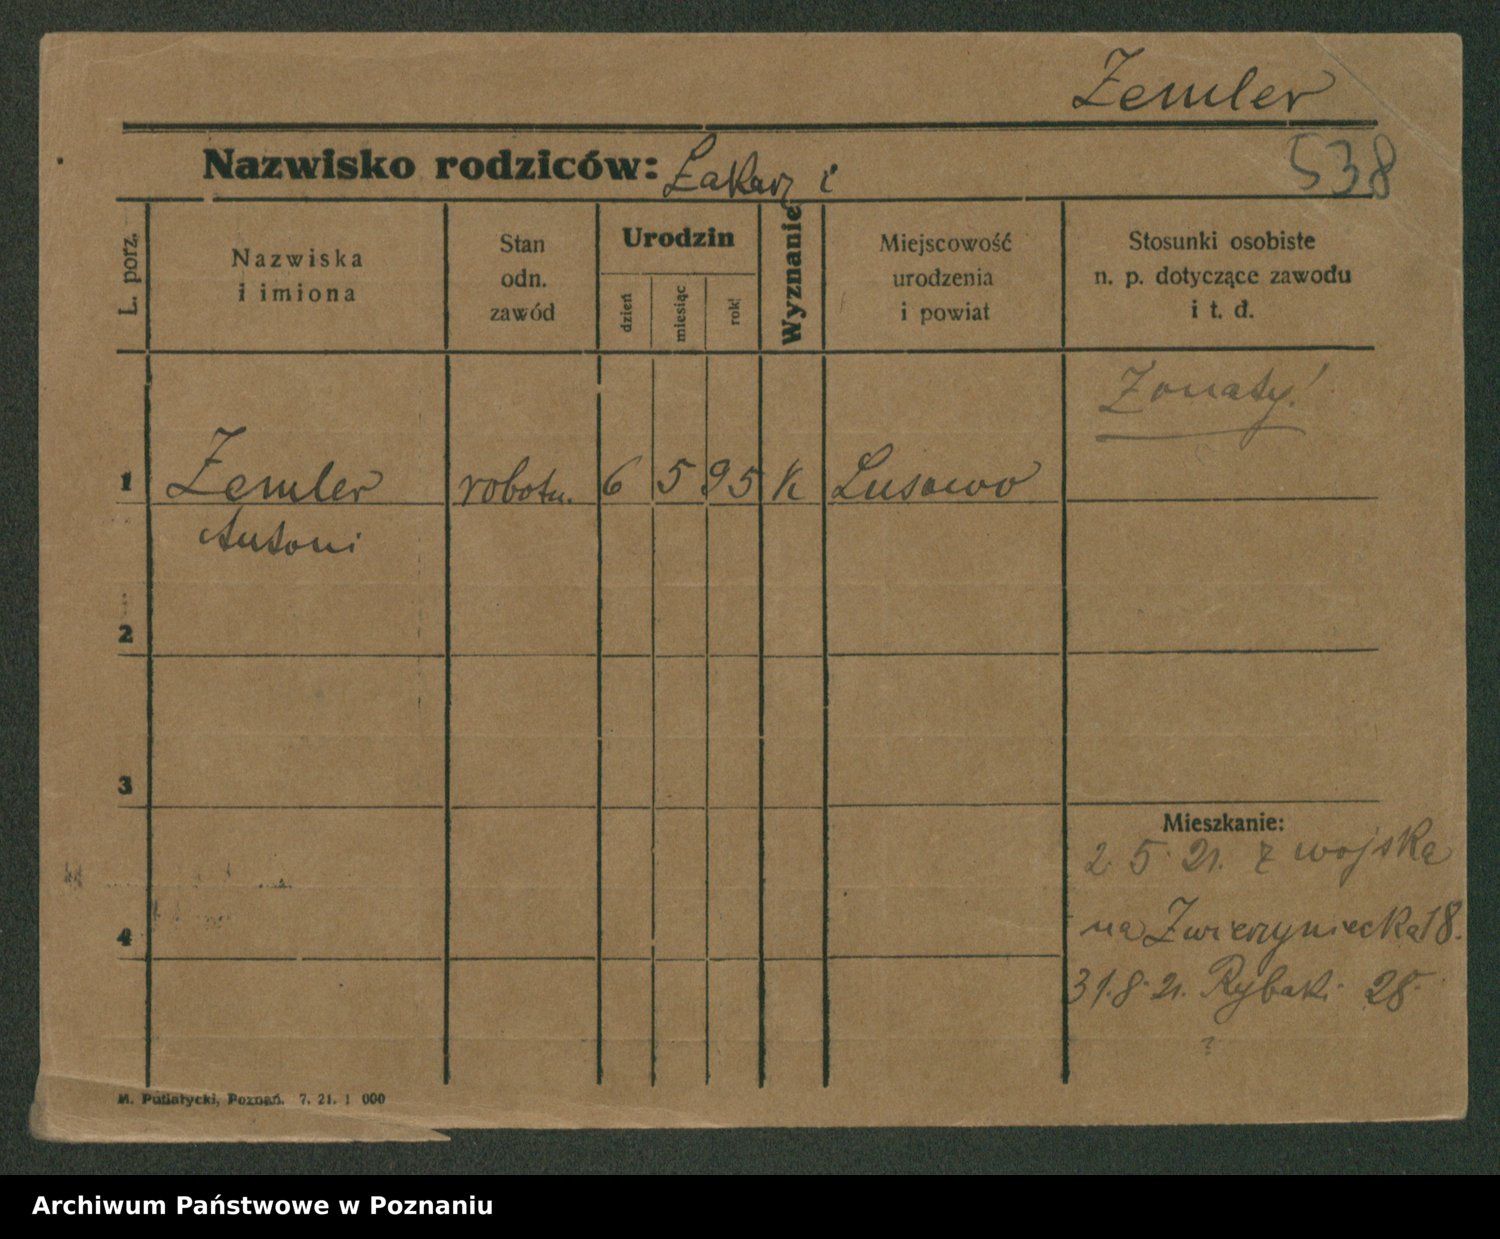 Zemler
538
Nazwisko rodziców: Łakarz i
L. porz.
Nazwiska
i imiona
Stan
odn.
zawód
Urodzin
dzień
miesiąc
rok
Wyznanie
Miejscowość
urodzenia
i powiat
Stosunki osobiste
n. p. dotyczące zawodu
i t. d.
Żonaty!
1 Zemler robotn. 6 5 95 K Lusowo
Antoni
2
3
Mieszkanie:
2. 5. 21. z wojska
4 na Zwierzyniecka 18.
31. 8. 21. Rybaki 28.
?
M. Putiatycki, Poznań. 7. 21. 1 000
Archiwum Państwowe w Poznaniu